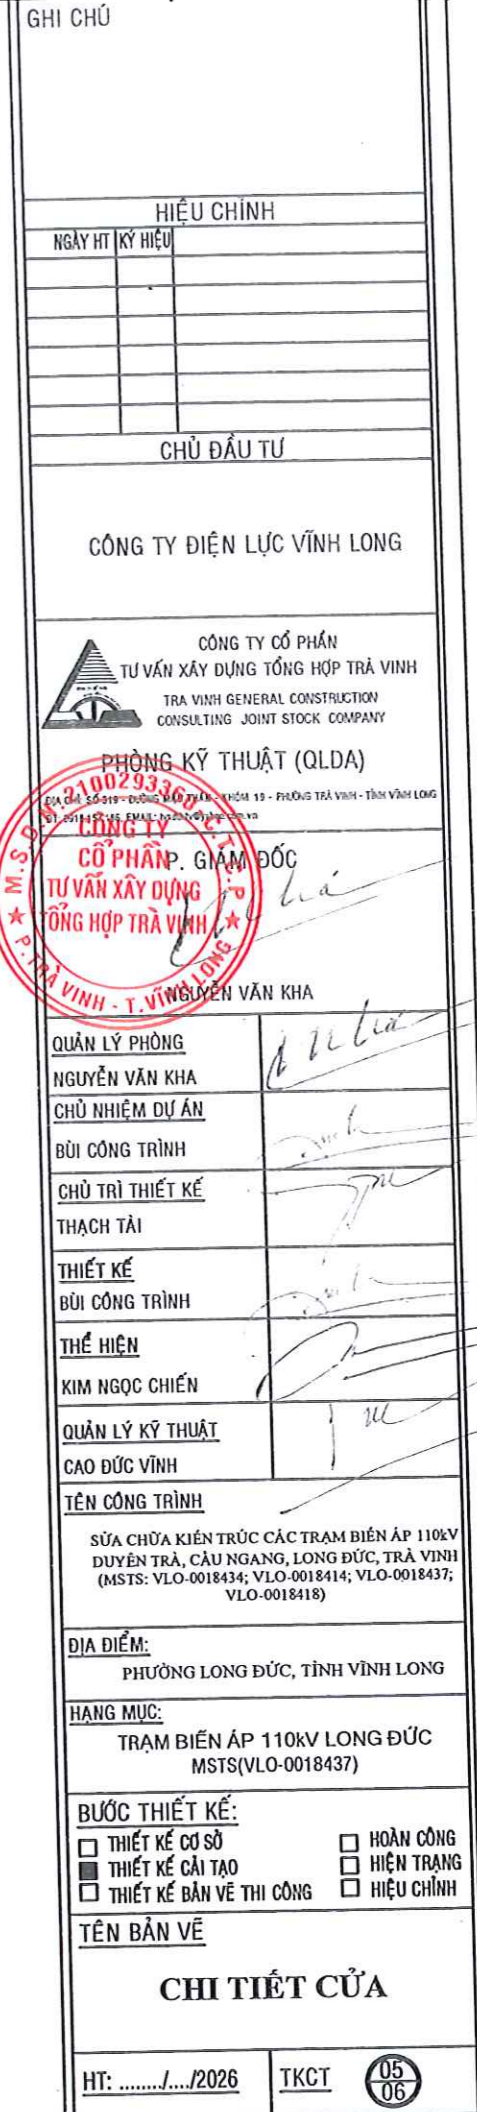 GHI CHÚ
HIỆU CHỈNH
NGÀY HT KÝ HIỆU
CHỦ ĐẦU TƯ
CÔNG TY ĐIỆN LỰC VĨNH LONG
CÔNG TY CỔ PHẦN
TƯ VẤN XÂY DỰNG TỔNG HỢP TRÀ VINH
TRA VINH GENERAL CONSTRUCTION
CONSULTING JOINT STOCK COMPANY
PHÒNG KỸ THUẬT (QLDA)
ĐỊA CHỈ: SỐ 319 - ĐƯỜNG MẬU THÂN - KHÓM 19 - PHƯỜNG TRÀ VINH - TỈNH VĨNH LONG
M.S.D.N: 2100293360 - C.T.C.P
CÔNG TY
CỔ PHẦN
TƯ VẤN XÂY DỰNG
TỔNG HỢP TRÀ VINH
P. TRÀ VINH - T. VĨNH LONG
P. GIÁM ĐỐC
NGUYỄN VĂN KHA
QUẢN LÝ PHÒNG
NGUYỄN VĂN KHA
CHỦ NHIỆM DỰ ÁN
BÙI CÔNG TRÌNH
CHỦ TRÌ THIẾT KẾ
THẠCH TÀI
THIẾT KẾ
BÙI CÔNG TRÌNH
THỂ HIỆN
KIM NGỌC CHIẾN
QUẢN LÝ KỸ THUẬT
CAO ĐỨC VĨNH
TÊN CÔNG TRÌNH
SỬA CHỮA KIẾN TRÚC CÁC TRẠM BIẾN ÁP 110kV
DUYÊN TRÀ, CẦU NGANG, LONG ĐỨC, TRÀ VINH
(MSTS: VLO-0018434; VLO-0018414; VLO-0018437;
VLO-0018418)
ĐỊA ĐIỂM:
PHƯỜNG LONG ĐỨC, TỈNH VĨNH LONG
HẠNG MỤC:
TRẠM BIẾN ÁP 110kV LONG ĐỨC
MSTS(VLO-0018437)
BƯỚC THIẾT KẾ:
THIẾT KẾ CƠ SỞ
THIẾT KẾ CẢI TẠO
THIẾT KẾ BẢN VẼ THI CÔNG
HOÀN CÔNG
HIỆN TRẠNG
HIỆU CHỈNH
TÊN BẢN VẼ
CHI TIẾT CỬA
HT: ......../..../2026
TKCT
05
06